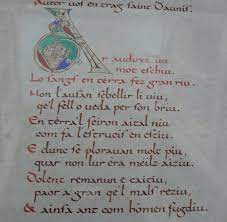 Autor vos en trag saint Daunis.
A audirez un
mot eschiu
Lo sangs en terra fez gran riu.
Non l'ausan sebellir li viu,
qe'l fell o veda per son briu.
En terra'l feiron aital niu
com fa l'estrucis en estiu.
E dunc se ploravan molt piu,
quar non lur era meilz aiziu.
Dolent remanun e caitiu,
paor a gran qe'l mals reziu,
& ainsa ant com homen fugdiu.